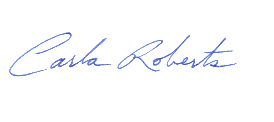 Carla Roberts